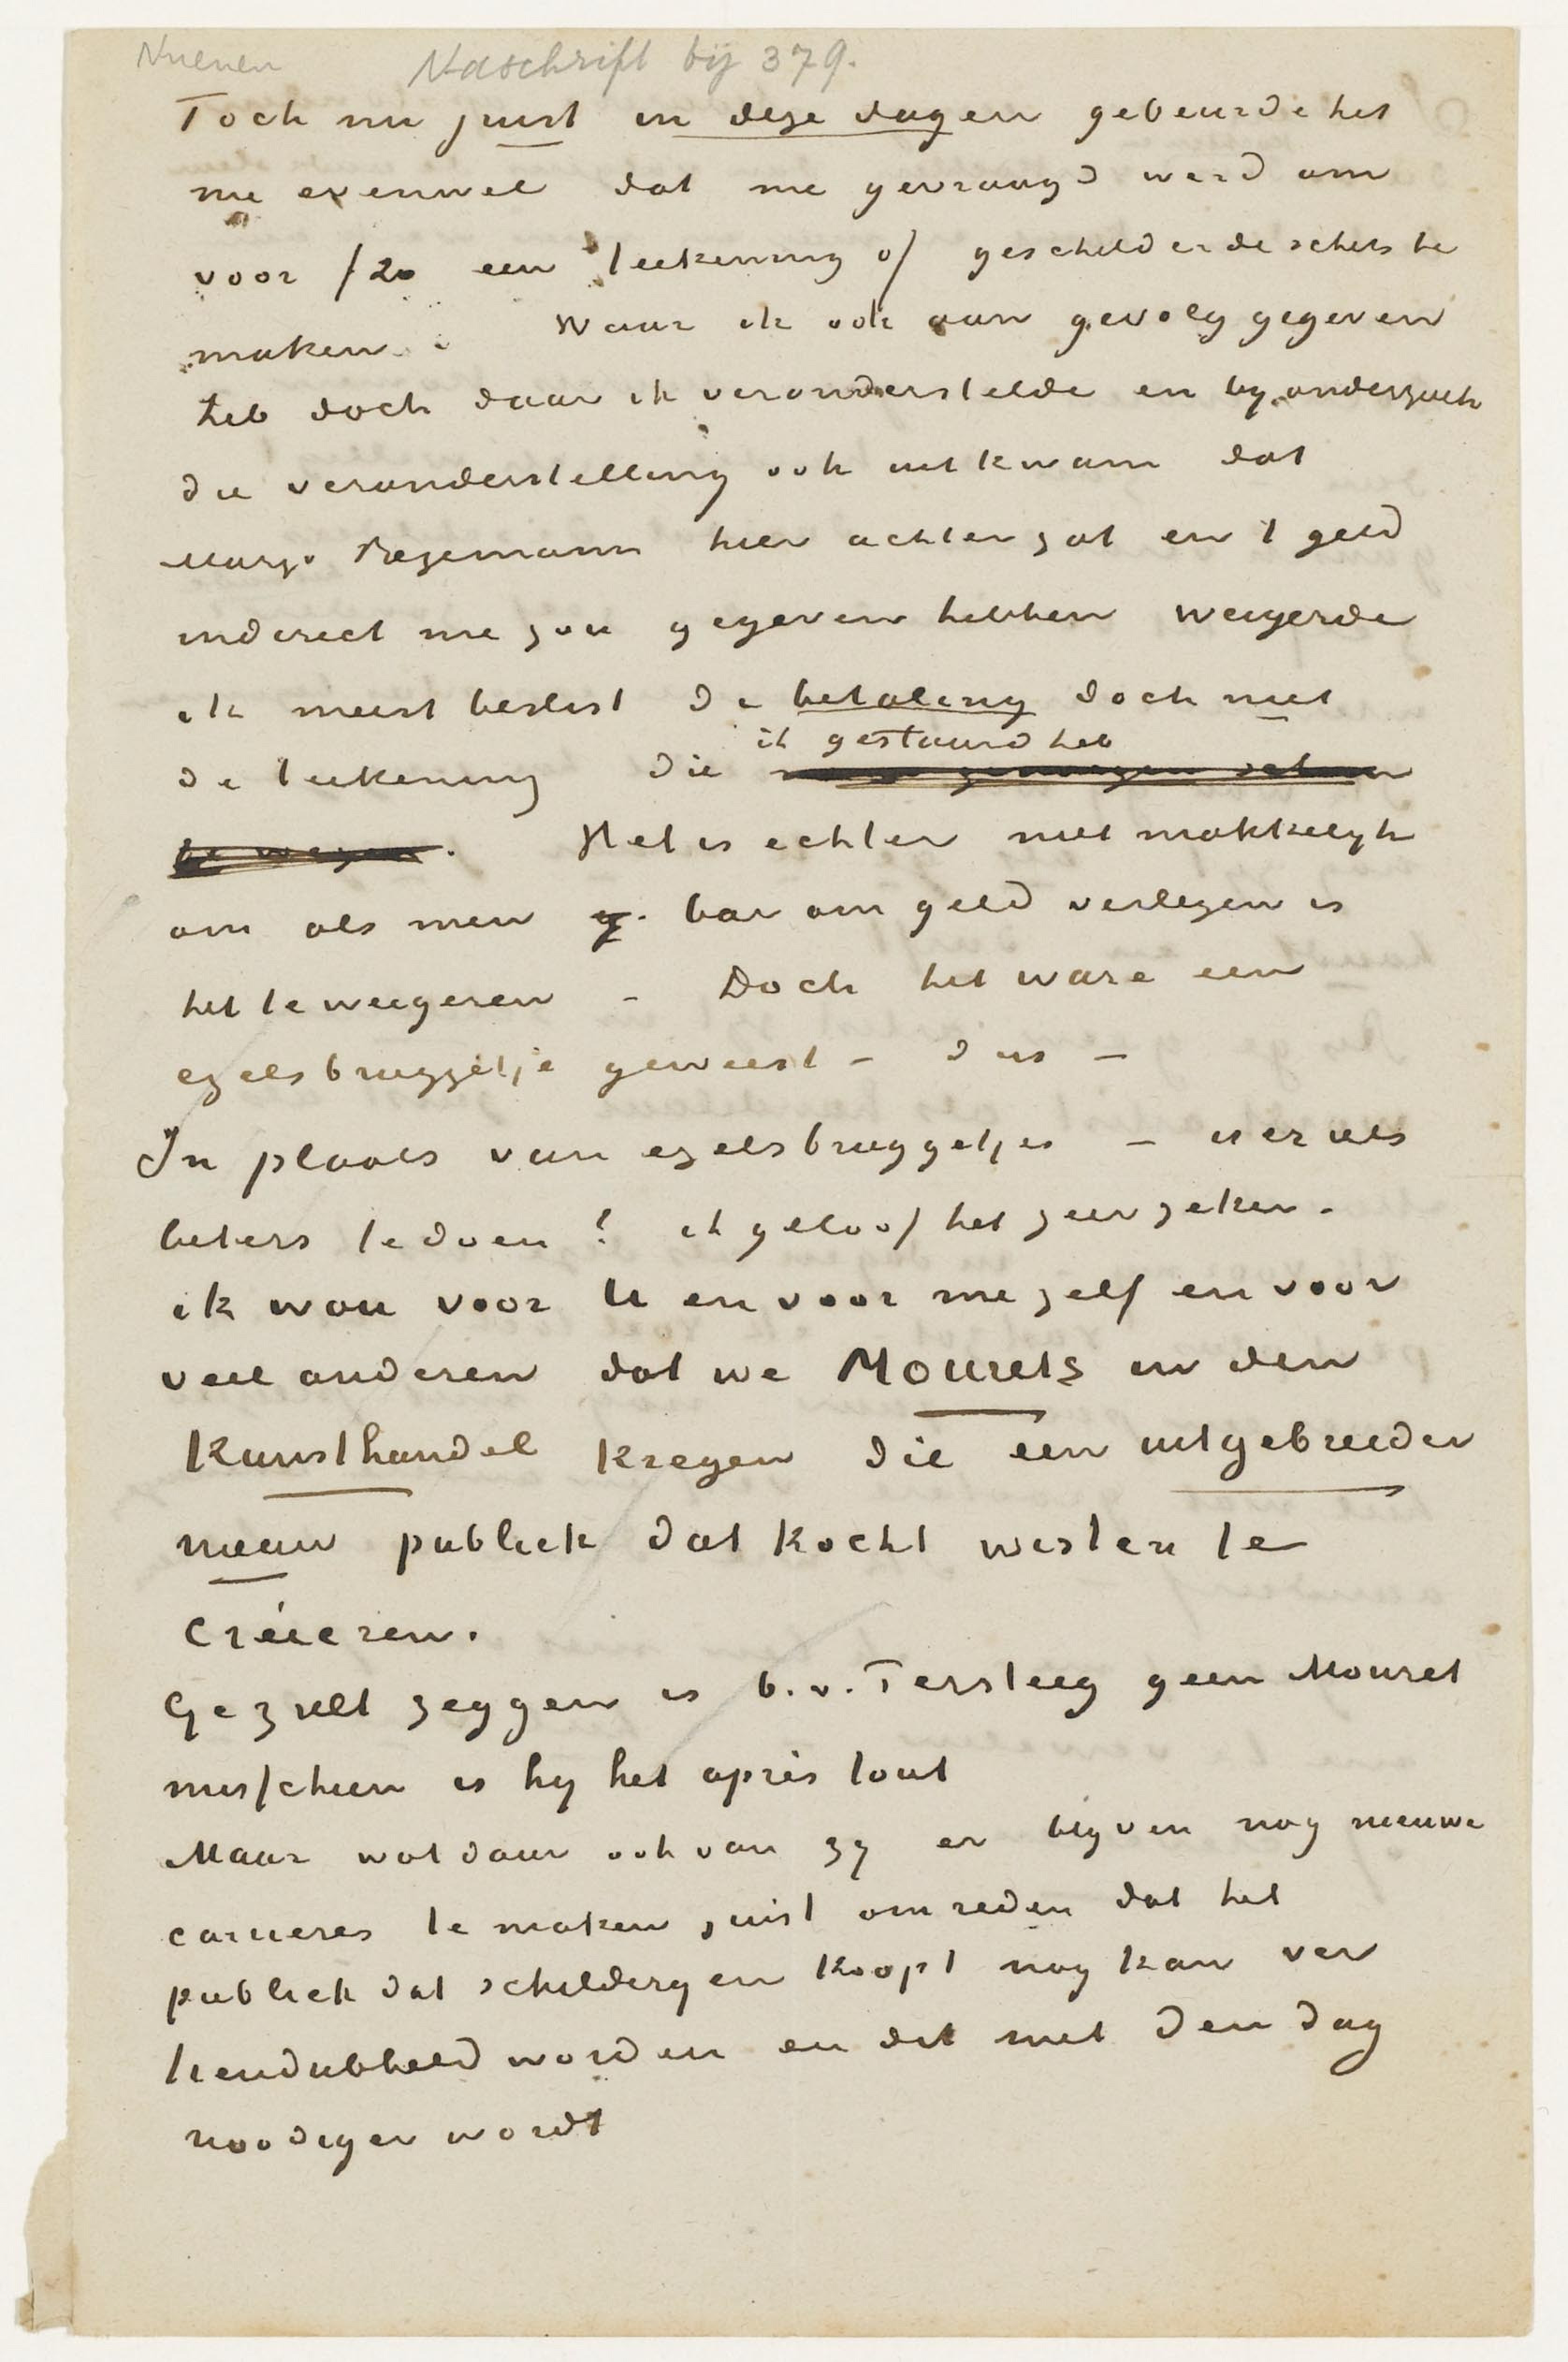 Nuenen Naschrift bij 379.
Toch nu juist in deze dagen gebeurde het
me evenwel dat me gevraagd werd om
voor f 20 een teekening of geschilderde schets te
maken. Waar ik ook aan gevolg gegeven
heb doch daar ik veronderstelde en by onderzoek
die veronderstelling ook uitkwam dat
Margo Begemann hier achter zat en 't geld
indirect me zou gegeven hebben weigerde
ik meest beslist de betaling doch niet
de teekening die
ik gestuurd heb
Het is echter niet makkelyk
om als men bar om geld verlegen is
het te weigeren – Doch het ware een
ezelsbruggetje geweest – dus –
In plaats van ezelsbruggetjes – is er iets
beters te doen? ik geloof het zeer zeker.
ik wou voor U en voor mezelf en voor
veel anderen dat we Mourets in den
Kunsthandel kregen die een uitgebreider
nieuw publiek dat kocht wisten te
creëeren.
Ge zult zeggen is b.v. Tersteeg geen Mouret
misschien is hy het après tout
Maar wat daar ook van zy er blyven nog nieuwe
carrieres te maken juist om reden dat het
publiek dat schilderyen koopt nog kan ver
tiendubbeld worden en dit met den dag
noodiger wordt